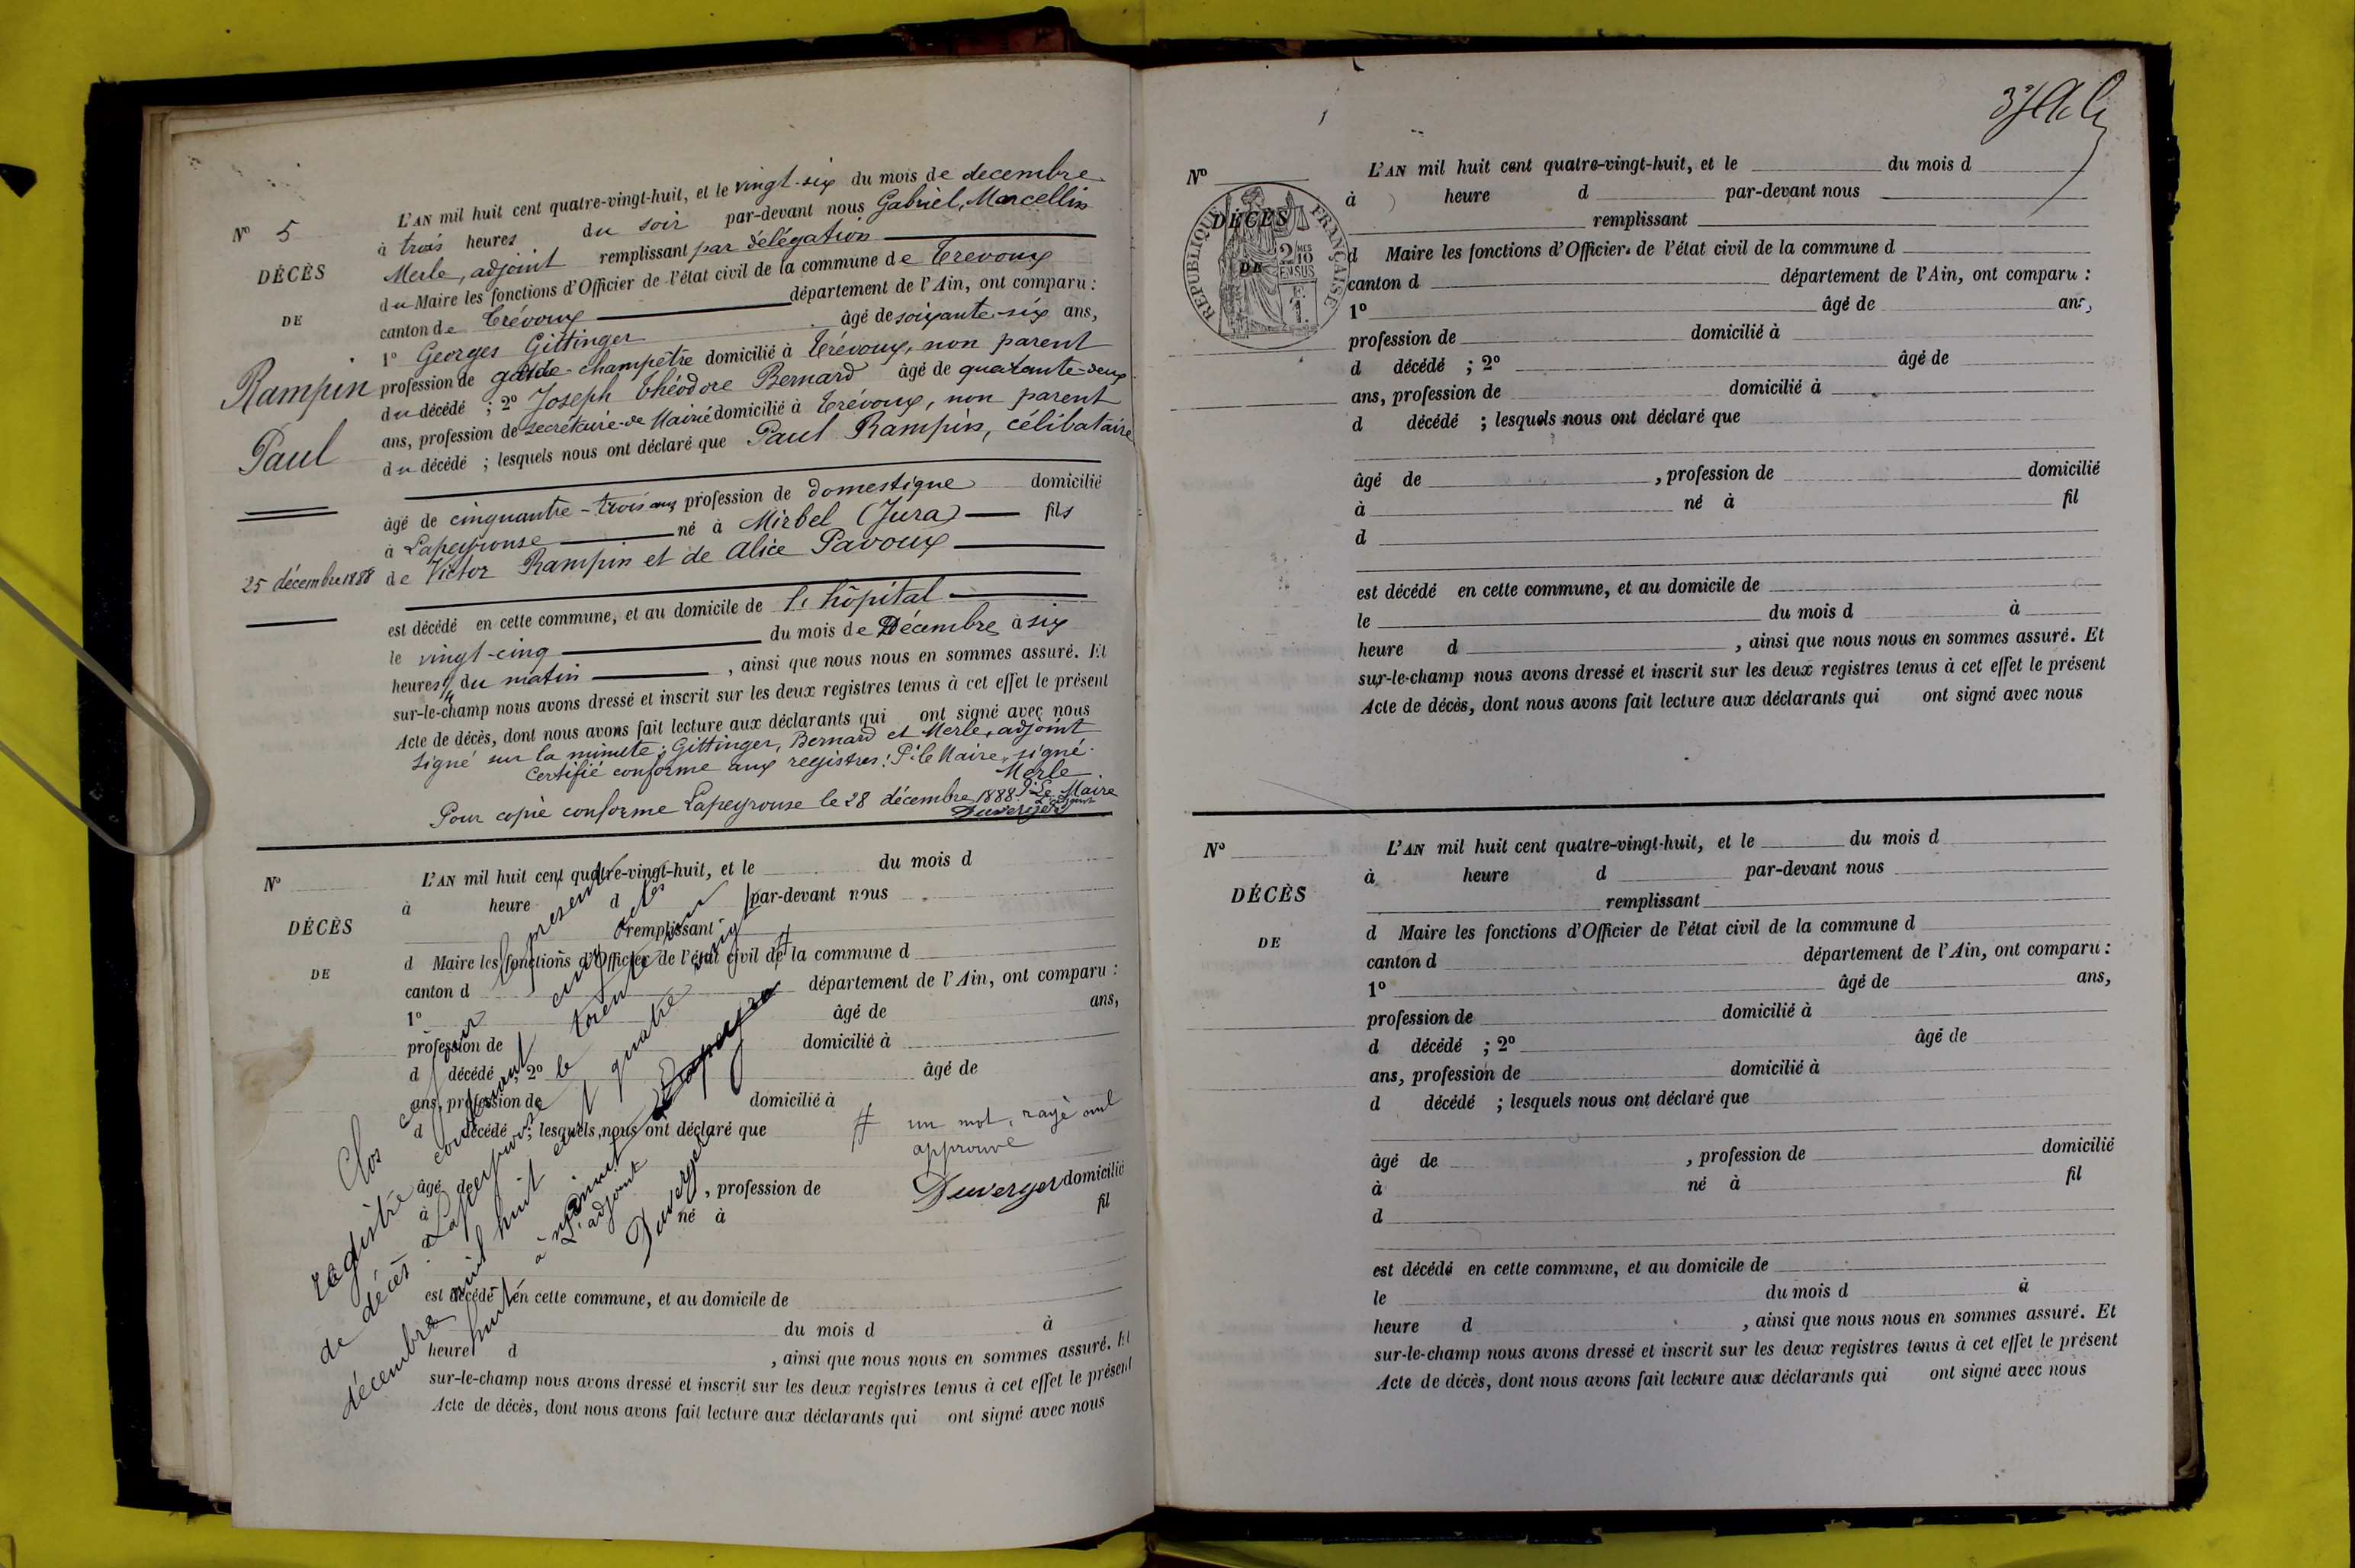 N° 5
DÉCÈS
DE
Rampin
Paul
25 décembre 1888
L'AN mil huit cent quatre-vingt-huit, et le vingt-six du mois de decembre
à trois heures du soir par-devant nous Gabriel, Marcellin
Merle, adjoint remplissant par délégation
du Maire les fonctions d'Officier de l'état civil de la commune de Trevoux
canton de Trévoux département de l'Ain, ont comparu :
1° Georges Gittinger âgé de soixante-six ans,
profession de garde-champêtre domicilié à Trévoux, non parent
du décédé ; 2° Joseph Théodore Bernard âgé de quarante-deux
ans, profession de secrétaire de Mairie domicilié à Trévoux, non parent
du décédé ; lesquels nous ont déclaré que Paul Rampin, célibataire
âgé de cinquante-trois ans profession de domestique domicilié
à Lapeyrouse né à Mirbel (Jura) fils
de Victor Rampin et de Alice Pavoux
est décédé en cette commune, et au domicile de l'hôpital
le vingt-cinq du mois de Décembre à six
heures du matin , ainsi que nous nous en sommes assuré. Et
sur-le-champ nous avons dressé et inscrit sur les deux registres tenus à cet effet le présent
Acte de décès, dont nous avons fait lecture aux déclarants qui ont signé avec nous
Signé sur la minute : Gittinger, Bernard et Merle, adjoint
Certifié conforme aux registres : P. le Maire, signé
Merle
Pour copie conforme Lapeyrouse le 28 décembre 1888 P. Le Maire
L'adjoint
Duverger
N°
DÉCÈS
DE
L'AN mil huit cent quatre-vingt-huit, et le du mois d
à heure d par-devant nous
remplissant
d Maire les fonctions d'Officier de l'état civil de la commune d
canton d département de l'Ain, ont comparu :
1° âgé de ans,
profession de domicilié à
d décédé ; 2° âgé de
ans, profession de domicilié à
d décédé ; lesquels nous ont déclaré que
âgé de , profession de domicilié
à né à fil
d
est décédé en cette commune, et au domicile de
le du mois d à
heure d , ainsi que nous nous en sommes assuré. Et
sur-le-champ nous avons dressé et inscrit sur les deux registres tenus à cet effet le présent
Acte de décès, dont nous avons fait lecture aux déclarants qui ont signé avec nous
Clos le présent
registre contenant cinq actes
de décès à Lapeyrouse le trente un
décembre mil huit cent quatre vingt
huit à minuit
L'adjoint
Duverger
# un mot, rayé nul
approuvé
Duverger
N°
DÉCÈS
DE
RÉPUBLIQUE FRANÇAISE
2 10 MES
EN SUS
L'AN mil huit cent quatre-vingt-huit, et le du mois d
à heure d par-devant nous
remplissant
d Maire les fonctions d'Officier de l'état civil de la commune d
canton d département de l'Ain, ont comparu :
1° âgé de ans,
profession de domicilié à
d décédé ; 2° âgé de
ans, profession de domicilié à
d décédé ; lesquels nous ont déclaré que
âgé de , profession de domicilié
à né à fil
d
est décédé en cette commune, et au domicile de
le du mois d à
heure d , ainsi que nous nous en sommes assuré. Et
sur-le-champ nous avons dressé et inscrit sur les deux registres tenus à cet effet le présent
Acte de décès, dont nous avons fait lecture aux déclarants qui ont signé avec nous
N°
DÉCÈS
DE
L'AN mil huit cent quatre-vingt-huit, et le du mois d
à heure d par-devant nous
remplissant
d Maire les fonctions d'Officier de l'état civil de la commune d
canton d département de l'Ain, ont comparu :
1° âgé de ans,
profession de domicilié à
d décédé ; 2° âgé de
ans, profession de domicilié à
d décédé ; lesquels nous ont déclaré que
âgé de , profession de domicilié
à né à fil
d
est décédé en cette commune, et au domicile de
le du mois d à
heure d , ainsi que nous nous en sommes assuré. Et
sur-le-champ nous avons dressé et inscrit sur les deux registres tenus à cet effet le présent
Acte de décès, dont nous avons fait lecture aux déclarants qui ont signé avec nous